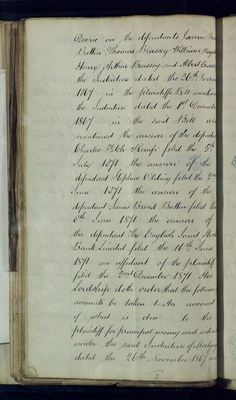 Decree on the defendants James
Brotten Thomas Brassey William
Henry Arthur Brassey and Albert Brassey
the Indenture dated the 26th
1867 in the plaintiffs Bill
the Indenture dated the 1st December
1867 in the said Bill
mentioned the answer of the defendant
Charles Fitch Kemp filed the 5th
July 1871 the answer of the
defendant Stephen Olding filed the 2nd
June 1871 the answer of the
defendant James Broad Brotten filed the
6th June 1871 the answer of
the defendant The English Joint Stock
Bank Limited filed the 16th June
1871 an affidavit of the plaintiff
filed the 2nd December 1871 His
Lordship doth order that the following
accounts be taken 1. An account
of what is due to the
plaintiff for principal money and interest
under the said Indenture of Mortgage
dated the 26th November 1867 and